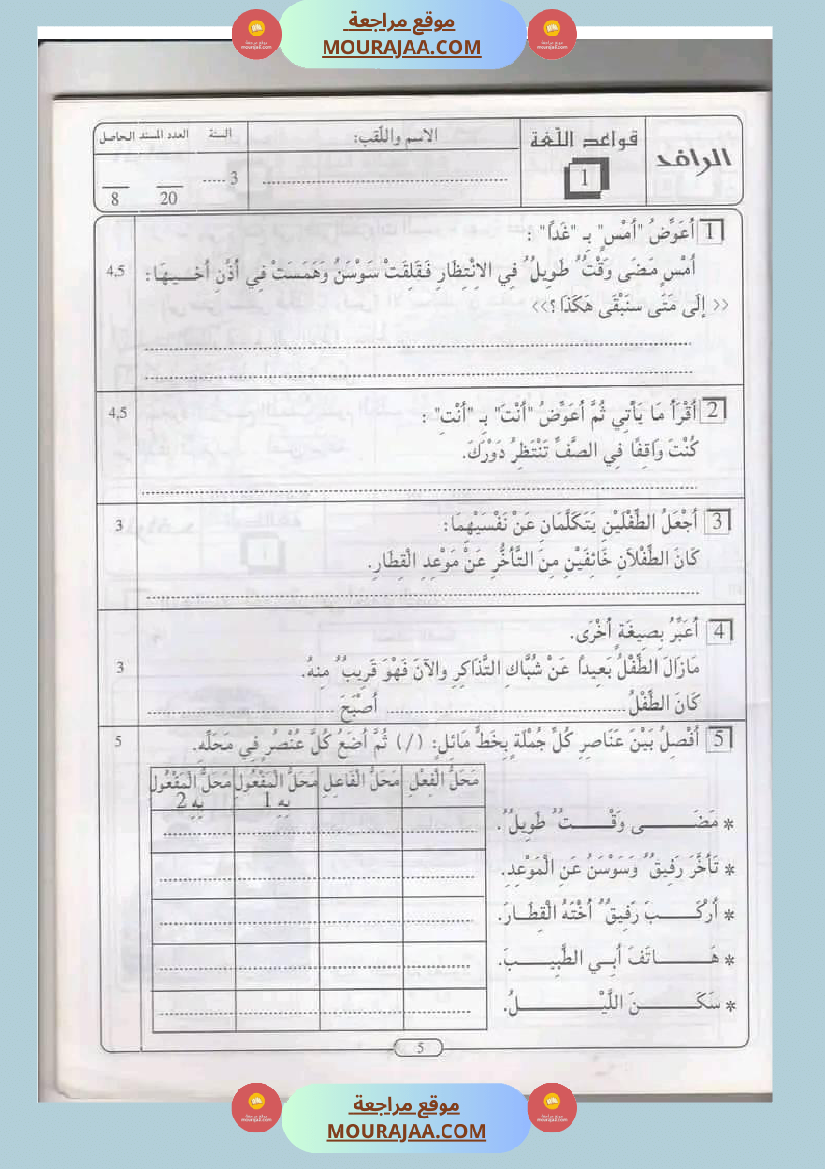 موقع مراجعة
MOURAJAA.COM
الرافد
قواعد اللّغة
1
الاسم واللّقب:
السنة
3 .....
العدد المسند
20
الحاصل
8
1 أُعَوِّضُ "أَمْسِ" بِـ "غَدًا" :
4,5
أَمْسِ مَضَى وَقْتٌ طَوِيلٌ فِي الاِنْتِظَارِ فَقَلِقَتْ سَوْسَنُ وَهَمَسَتْ فِي أُذُنِ أَخِيهَا:
<< إِلَى مَتَى سَنَبْقَى هَكَذَا؟>>
2 أَقْرَأُ مَا يَأْتِي ثُمَّ أُعَوِّضُ "أَنْتَ" بِـ "أَنْتِ" :
4,5
كُنْتَ وَاقِفًا فِي الصَّفِّ تَنْتَظِرُ دَوْرَكَ.
3 أَجْعَلُ الطِّفْلَيْنِ يَتَكَلَّمَانِ عَنْ نَفْسَيْهِمَا:
3
كَانَ الطِّفْلاَنِ خَائِفَيْنِ مِنَ التَّأَخُّرِ عَنْ مَوْعِدِ الْقِطَارِ.
4 أُعَبِّرُ بِصِيغَةٍ أُخْرَى.
3
مَازَالَ الطِّفْلُ بَعِيداً عَنْ شُبَّاكِ التَّذَاكِرِ والآنَ فَهْوَ قَرِيبٌ مِنهُ.
كَانَ الطِّفْلُ ........ أَصْبَحَ ........
5 أَفْصِلُ بَيْنَ عَنَاصِرِ كُلِّ جُمْلَةٍ بِخَطٍّ مَائِلٍ: (/) ثُمَّ أَضَعُ كُلَّ عُنْصُرٍ فِي مَحَلِّهِ.
5
مَحَلُّ الْفِعْلِ
مَحَلُّ الْفَاعِلِ
مَحَلُّ الْمَفْعُولِ بِهِ 1
مَحَلُّ الْمَفْعُولِ بِهِ 2
* مَضَـــى وَقْـــتٌ طَوِيلٌ.
* تَأَخَّرَ رَفِيقٌ وَسَوْسَنُ عَنِ الْمَوْعِدِ.
* أَرْكَـــبَ رَفِيقٌ أُخْتَهُ الْقِطَـارَ.
* هَـــاتَفَ أَبِـي الطَّبِيـــبَ.
* سَكَـــنَ اللَّيْـــلُ.
5
موقع مراجعة
MOURAJAA.COM